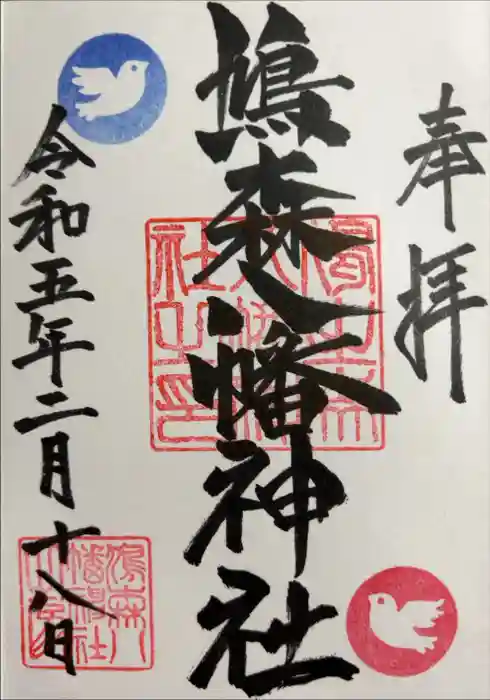 奉拝
鳩森八幡神社
令和五年二月十八日